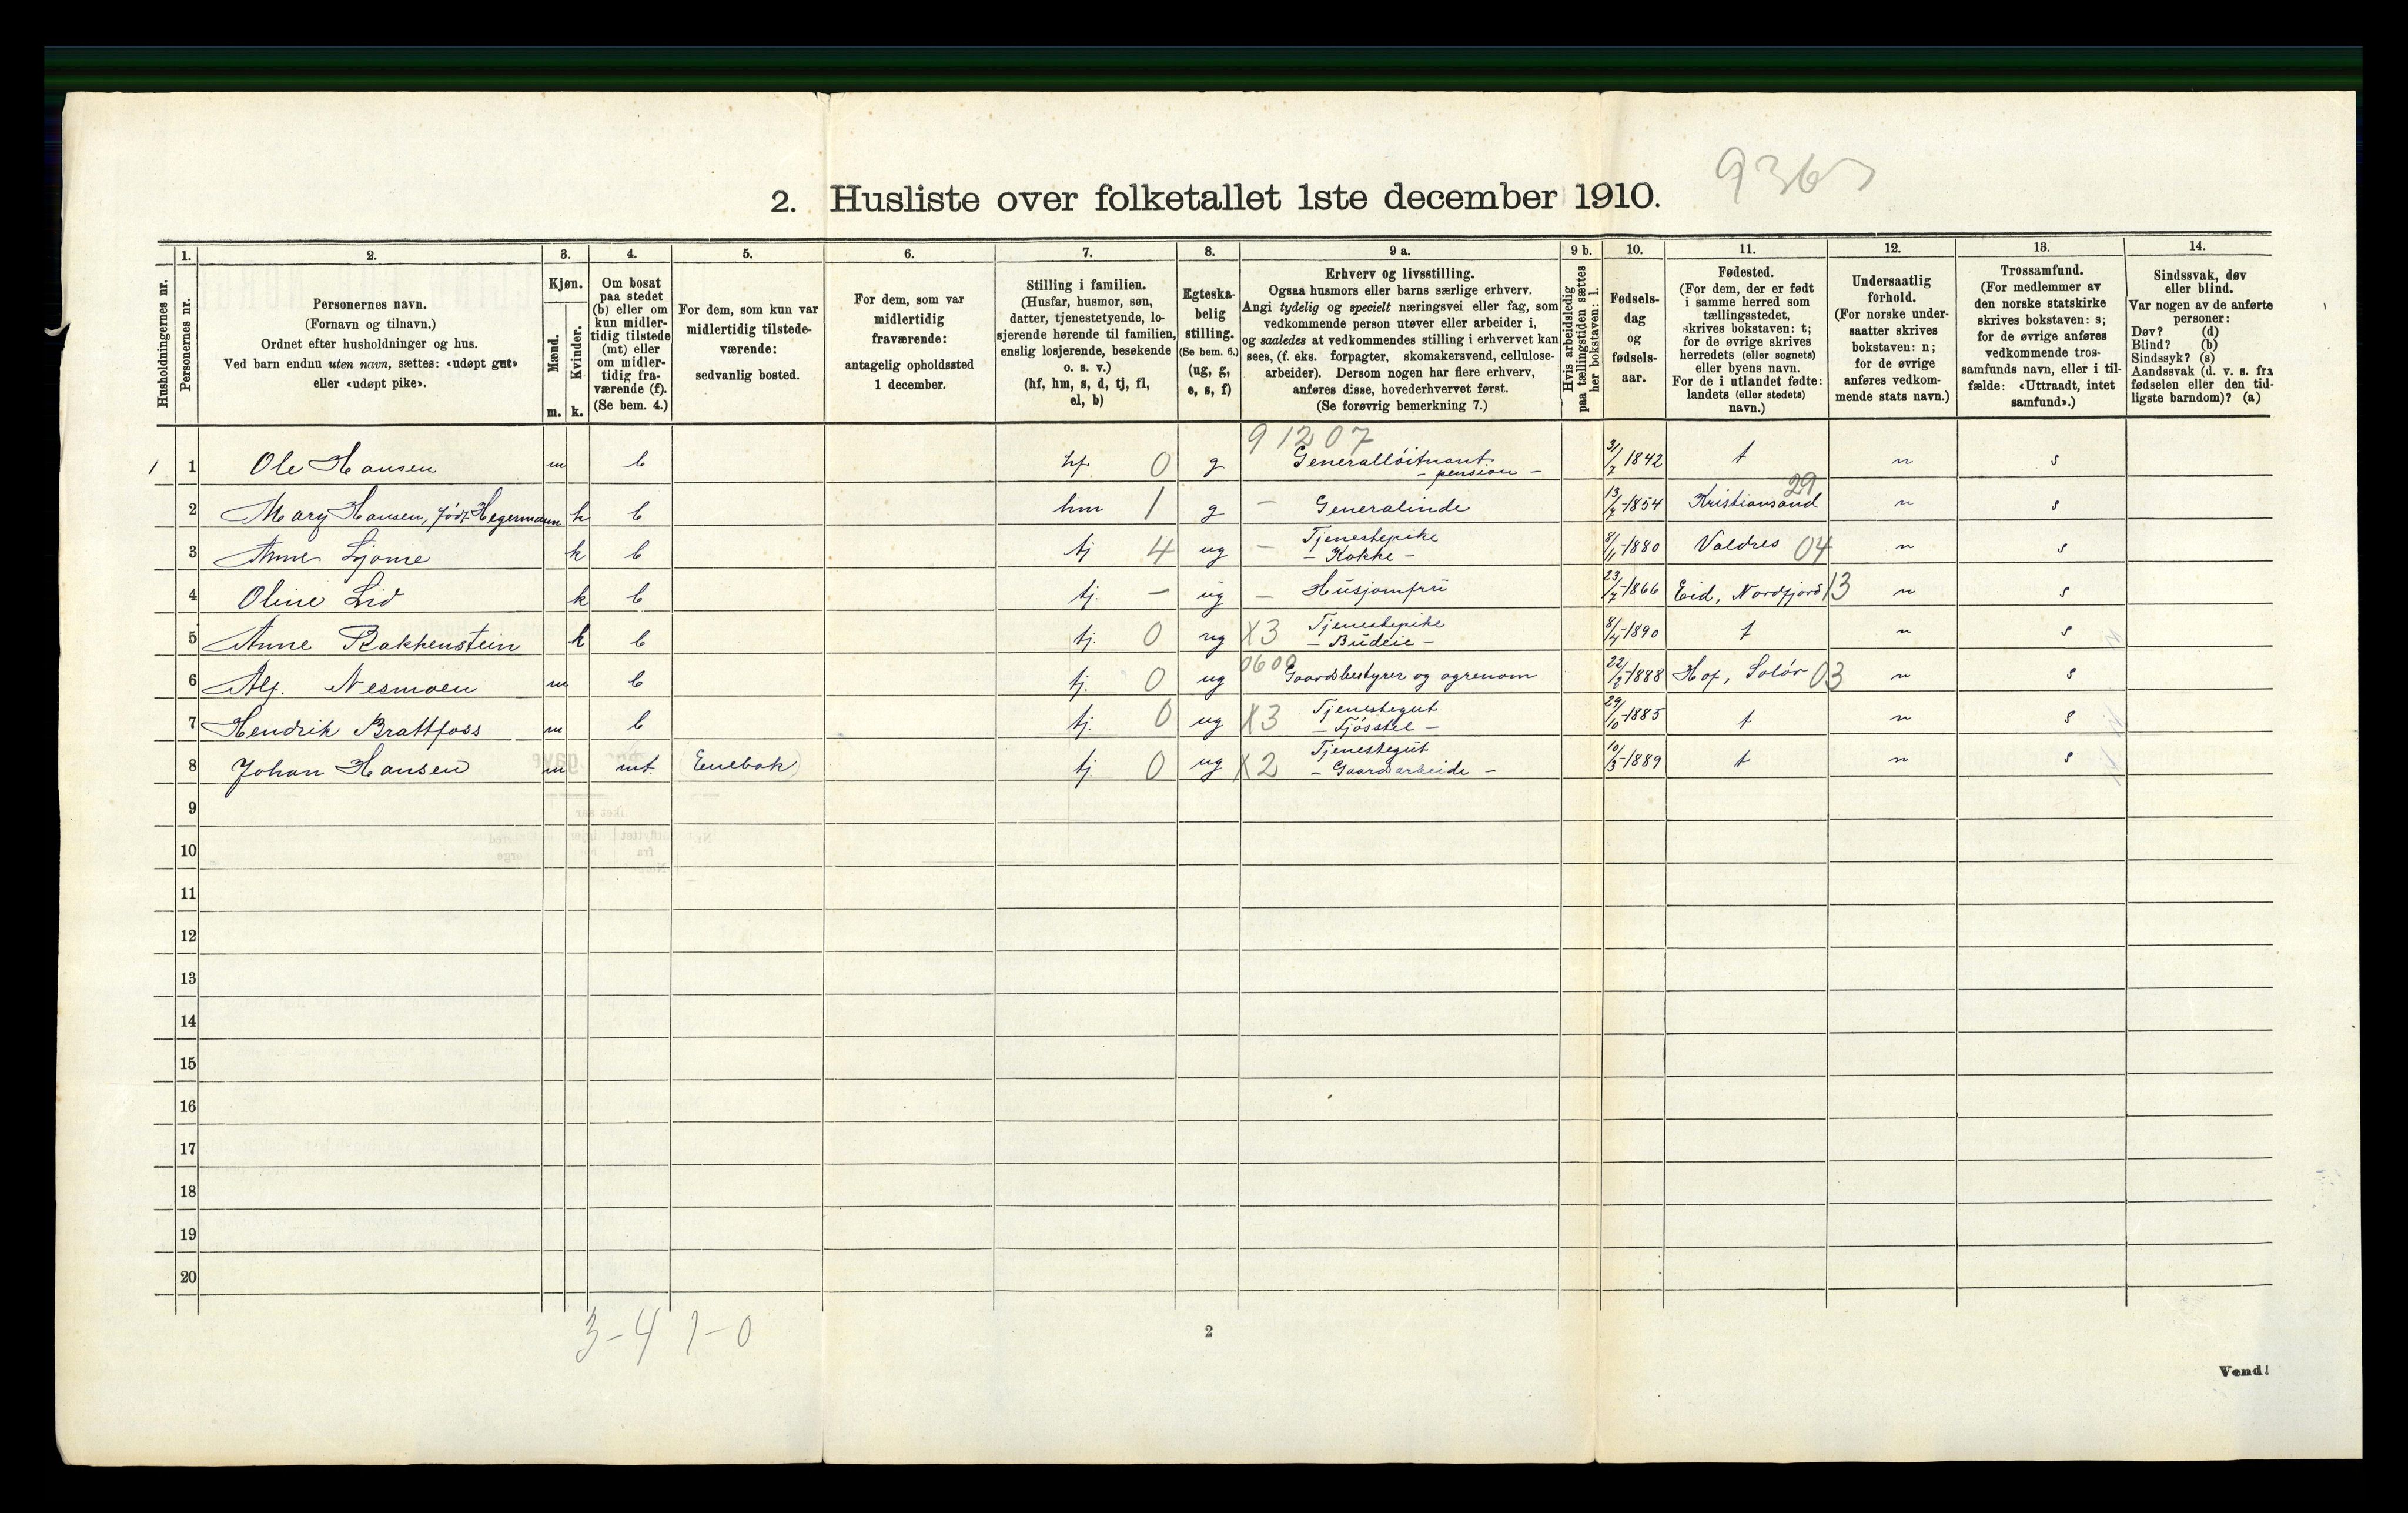 9365
2. Husliste over folketallet 1ste december 1910.
Husholdningernes nr.
1.
Personernes nr.
2.
Personernes navn.
(Fornavn og tilnavn.)
Ordnet efter husholdninger og hus.
Ved barn endnu uten navn, sættes: «udøpt gut»
eller «udøpt pike».
3.
Kjøn.
Mænd.
Kvinder.
m. k.
4.
Om bosat
paa stedet
(b) eller om
kun midler-
tidig tilstede
(mt) eller
om midler-
tidig fra-
værende (f).
(Se bem. 4.)
5.
For dem, som kun var
midlertidig tilstede-
værende:
sedvanlig bosted.
6.
For dem, som var
midlertidig
fraværende:
antagelig opholdssted
1 december.
7.
Stilling i familien.
(Husfar, husmor, søn,
datter, tjenestetyende, lo-
sjerende hørende til familien,
enslig losjerende, besøkende
o. s. v.)
(hf, hm, s, d, tj, fl,
el, b)
8.
Egteska-
belig
stilling.
(Se bem. 6.)
(ug, g,
e, s, f)
9 a.
Erhverv og livsstilling.
Ogsaa husmors eller barns særlige erhverv.
Angi tydelig og specielt næringsvei eller fag, som
vedkommende person utøver eller arbeider i,
og saaledes at vedkommendes stilling i erhvervet kan
sees, (f. eks. forpagter, skomakersvend, cellulose-
arbeider). Dersom nogen har flere erhverv,
anføres disse, hovederhvervet først.
(Se forøvrig bemerkning 7.)
9 b.
Hvis arbeidsledig
paa tællingstiden sættes
her bokstaven: l.
10.
Fødsels-
dag
og
fødsels-
aar.
11.
Fødested.
(For dem, der er født
i samme herred som
tællingsstedet,
skrives bokstaven: t;
for de øvrige skrives
herredets (eller sognets)
eller byens navn.
For de i utlandet fødte:
landets (eller stedets)
navn.)
12.
Undersaatlig
forhold.
(For norske under-
saatter skrives
bokstaven: n;
for de øvrige
anføres vedkom-
mende stats navn.)
13.
Trossamfund.
(For medlemmer av
den norske statskirke
skrives bokstaven: s;
for de øvrige anføres
vedkommende tros-
samfunds navn, eller i til-
fælde: «Uttraadt, intet
samfund».)
14.
Sindssvak, døv
eller blind.
Var nogen av de anførte
personer:
Døv? (d)
Blind? (b)
Sindssyk? (s)
Aandssvak (d. v. s. fra
fødselen eller den tid-
ligste barndom)? (a)
91207
1 1 Ole Hansen m b hf 0 g Generalløitnant - pension - 31/7 1842 t n s
2 Mary Hansen, født Hegermann k b hm 1 g - Generalinde 13/7-1854 Kristiansand 29 n s
3 Anne Ljome k b tj 4 ug - Tjenestepike - Kokke - 8/11-1880 Valdres 04 n s
4 Oline Lid k b tj. - ug - Husjomfru 23/7-1866 Eid, Nordfjord 13 n s
5 Anne Bakkenstein k b tj. 0 ug X3 Tjenestepike - Budeie - 8/4-1890 t n s
6 Alf. Nesmoen m b tj. 0 ug 0600 Gaardsbestyrer og agronom 22/2-1888 Hof, Solør 03 n s
7 Hendrik Brattfoss m b tj. 0 ug X3 Tjenestegut - Fjøsstel - 29/10-1885 t n s
8 Johan Hansen m mt. (Enebak) tj. 0 ug X2 Tjenestegut - Gaardsarbeide - 10/3-1889 t n s
9
10
11
12
13
14
15
16
17
18
19
20
3-4 1-0
2
Vend!